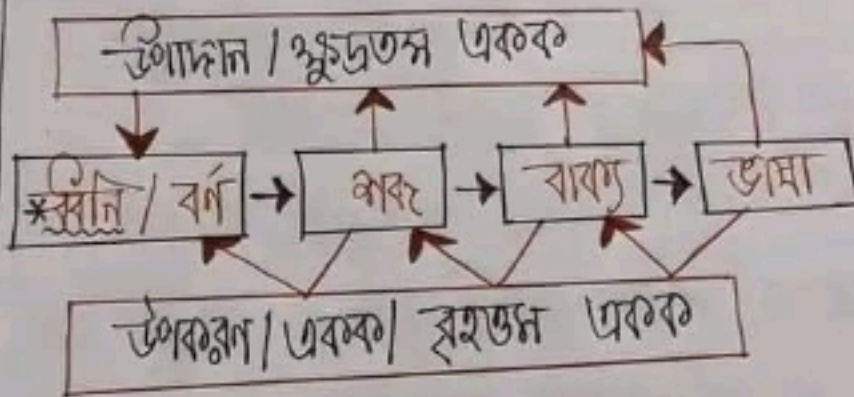 উপাদান / ক্ষুদ্রতম একক
*ধ্বনি / বর্ণ → শব্দ → বাক্য → ভাষা
উপকরণ / একক / বৃহত্তম একক